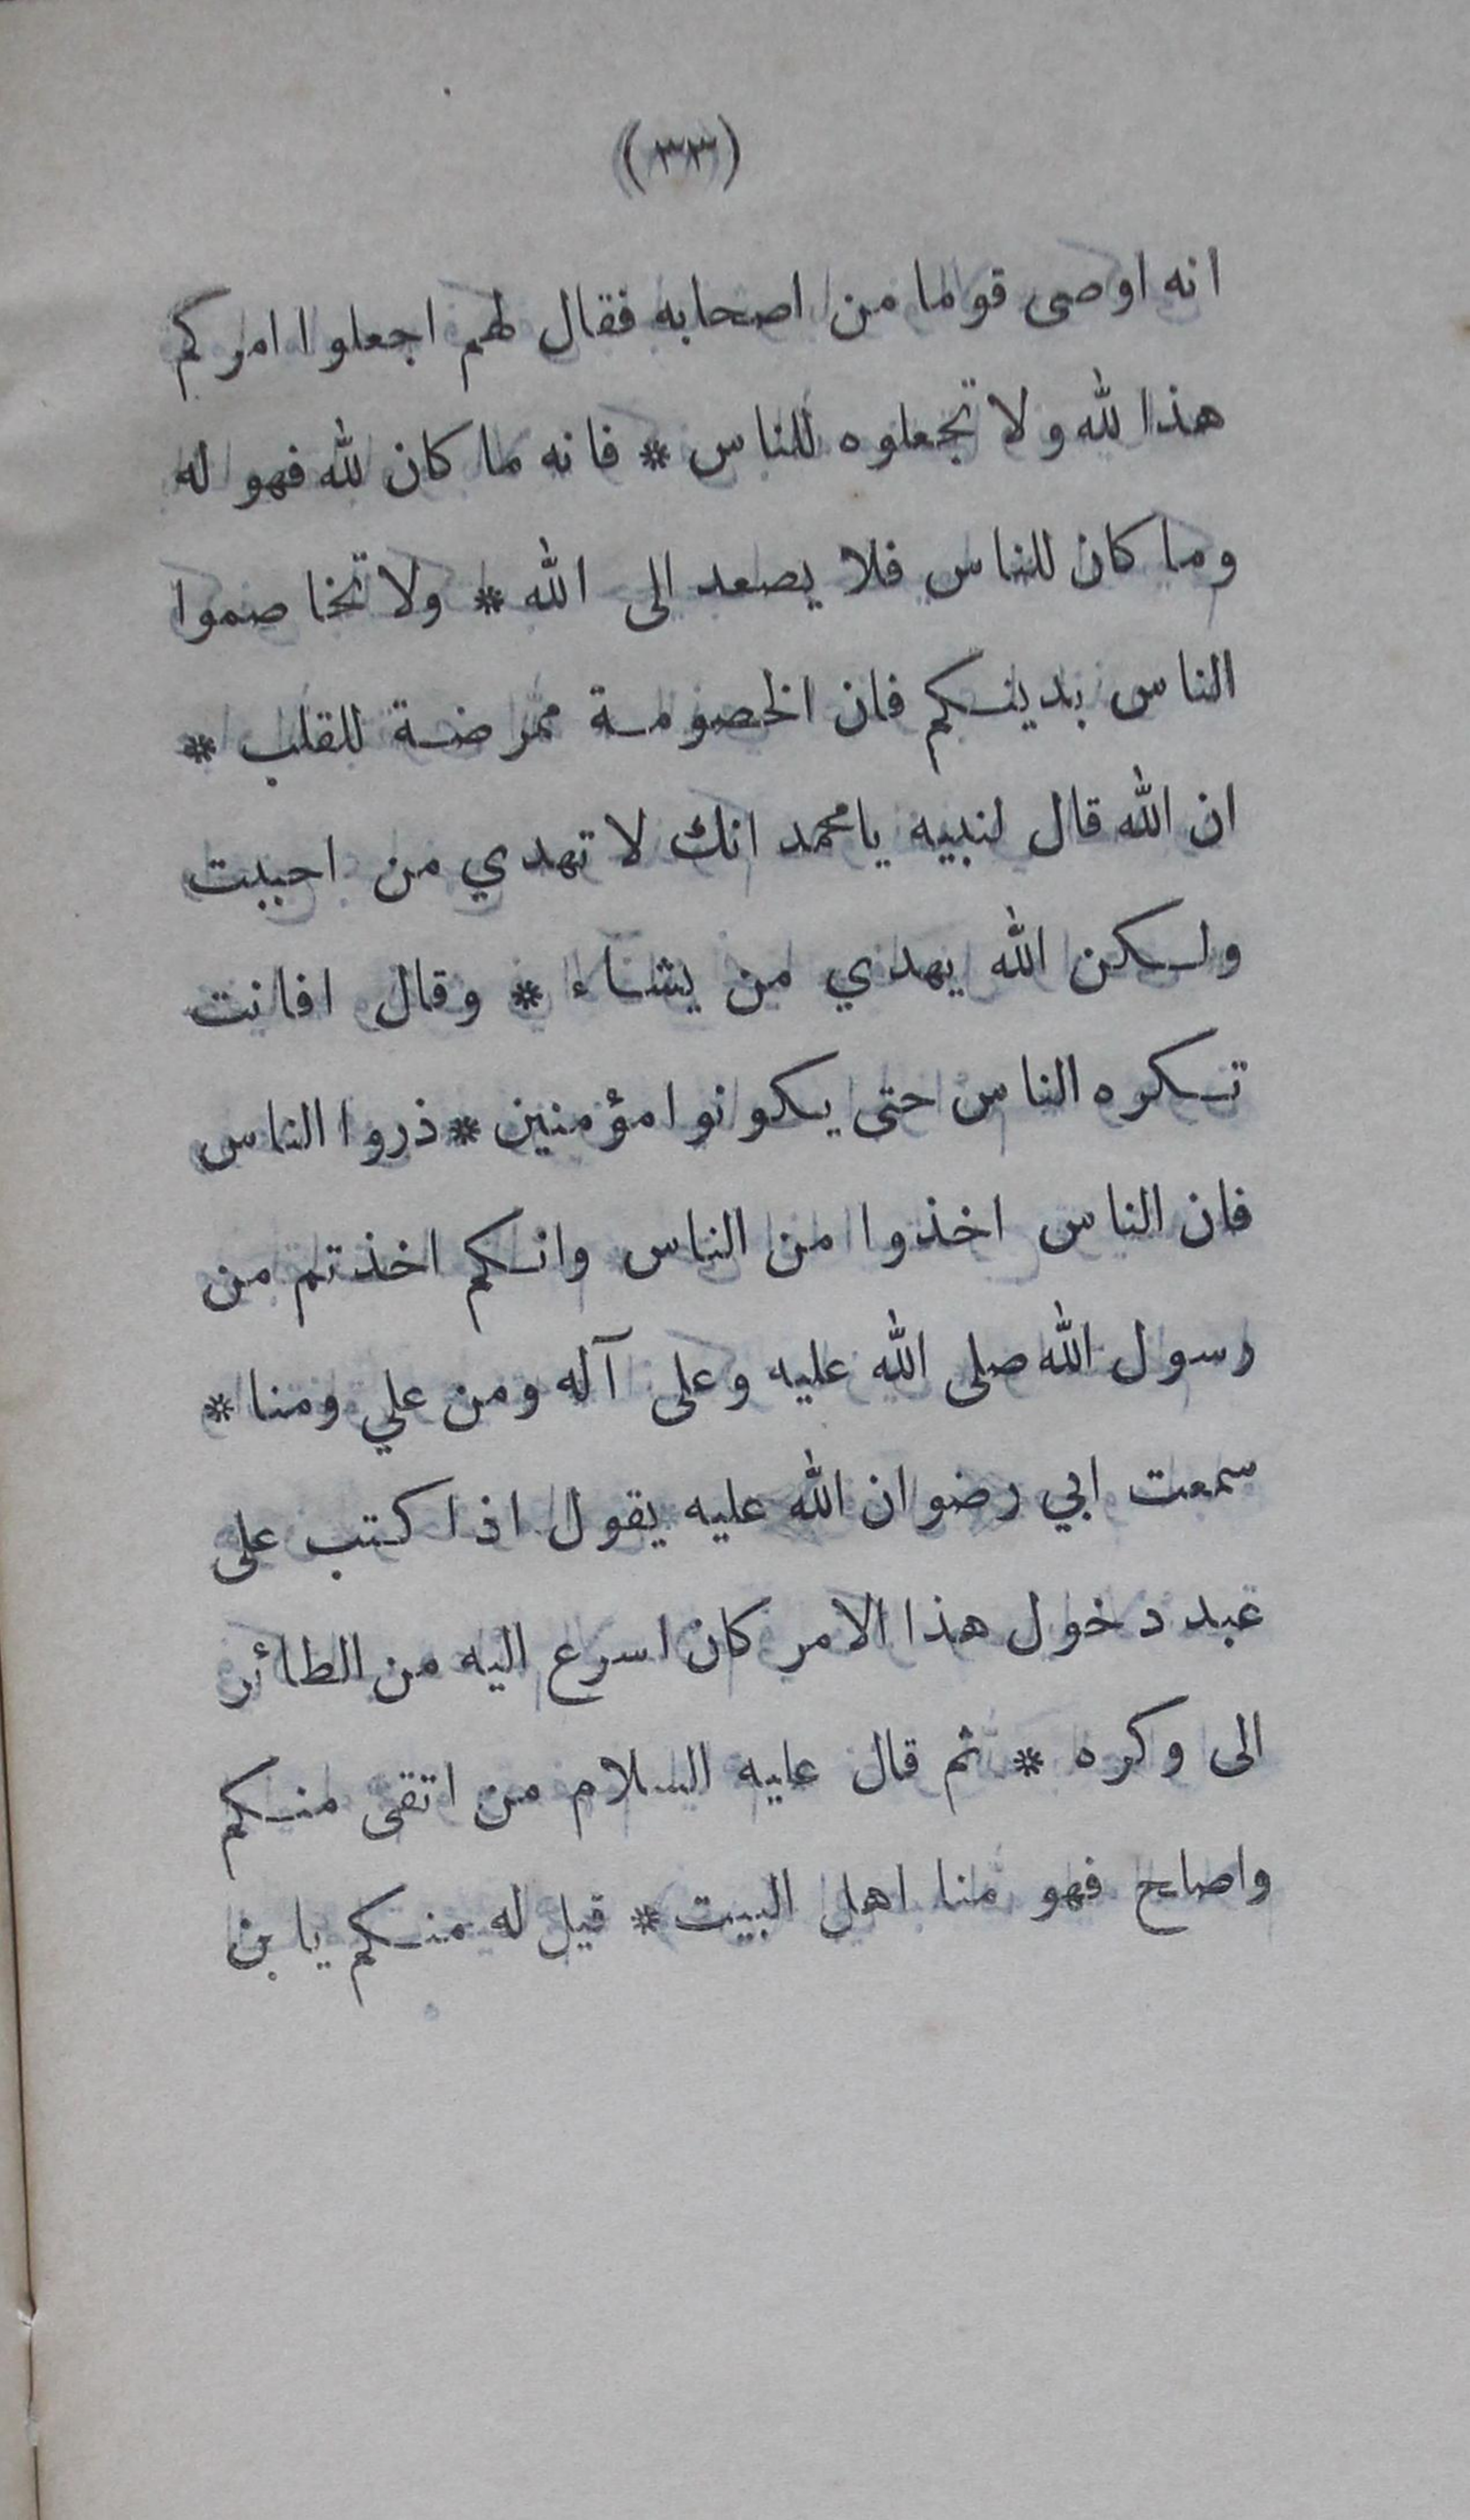 (٣٣)
انه اوصى قوما من اصحابه فقال لهم اجعلوا امركم
هذا لله ولا تجعلوه للناس * فانه ما كان لله فهو له
وما كان للناس فلا يصعد الى الله * ولا تخاصموا
الناس بدينكم فان الخصومة ممرضة للقلب *
ان الله قال لنبيه يا محمد انك لا تهدي من احببت
ولكن الله يهدي من يشاء * وقال افانت
تكره الناس حتى يكونوا مؤمنين * ذروا الناس
فان الناس اخذوا من الناس وانكم اخذتم من
رسول الله صلى الله عليه وعلى آله ومن علي ومنا *
سمعت ابي رضوان الله عليه يقول اذا كتب على
عبد دخول هذا الامر كان اسرع اليه من الطائر
الى وكره * ثم قال عليه السلام من اتقى منكم
واصلح فهو منا اهل البيت * قيل له منكم يا بن